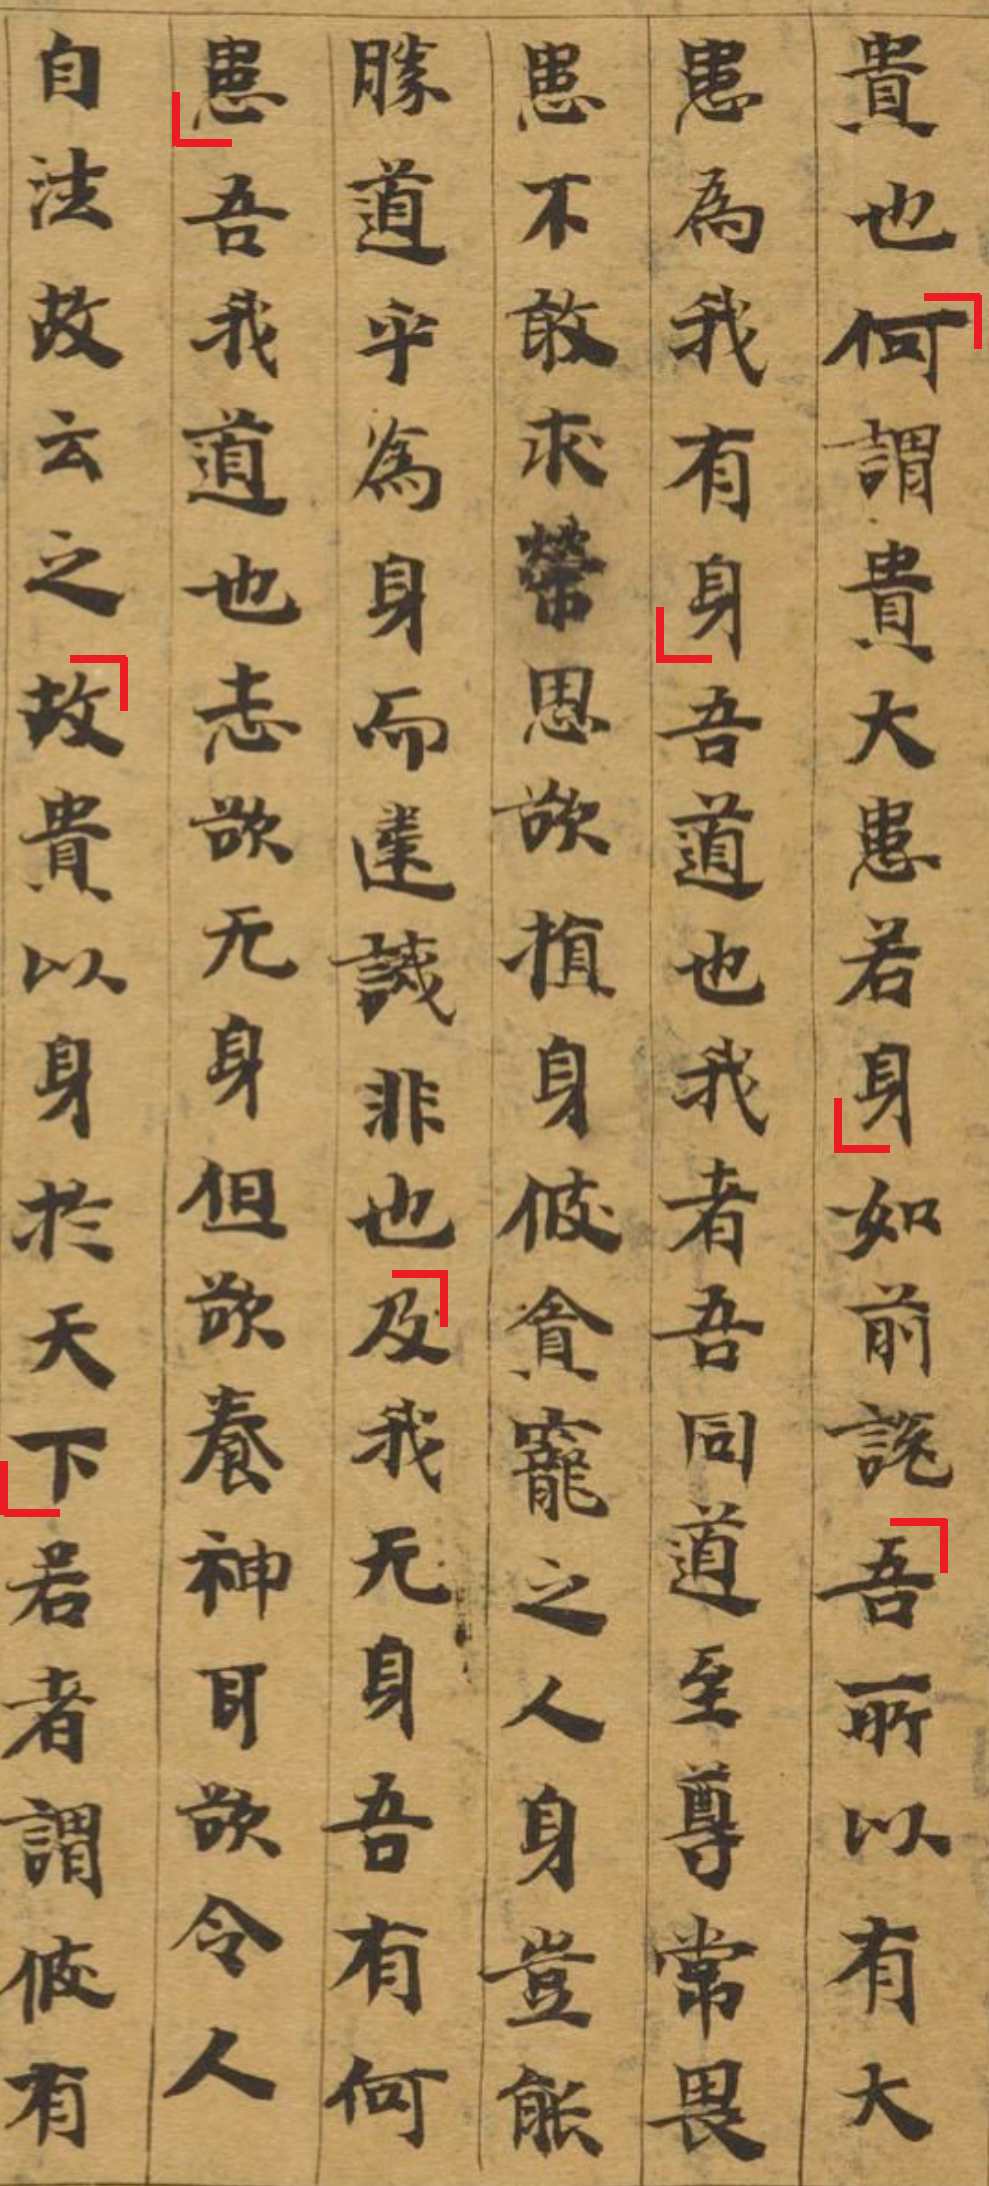 貴也何謂貴大患若身如前說吾所以有大
患為我有身吾道也我者吾同道至尊常畏
患不敢求榮思欲損身彼貪寵之人身豈能
勝道乎為身而違誡非也及我无身吾有何
患吾我道也志欲无身但欲養神耳欲令人
自法故云之故貴以身於天下若者謂彼有